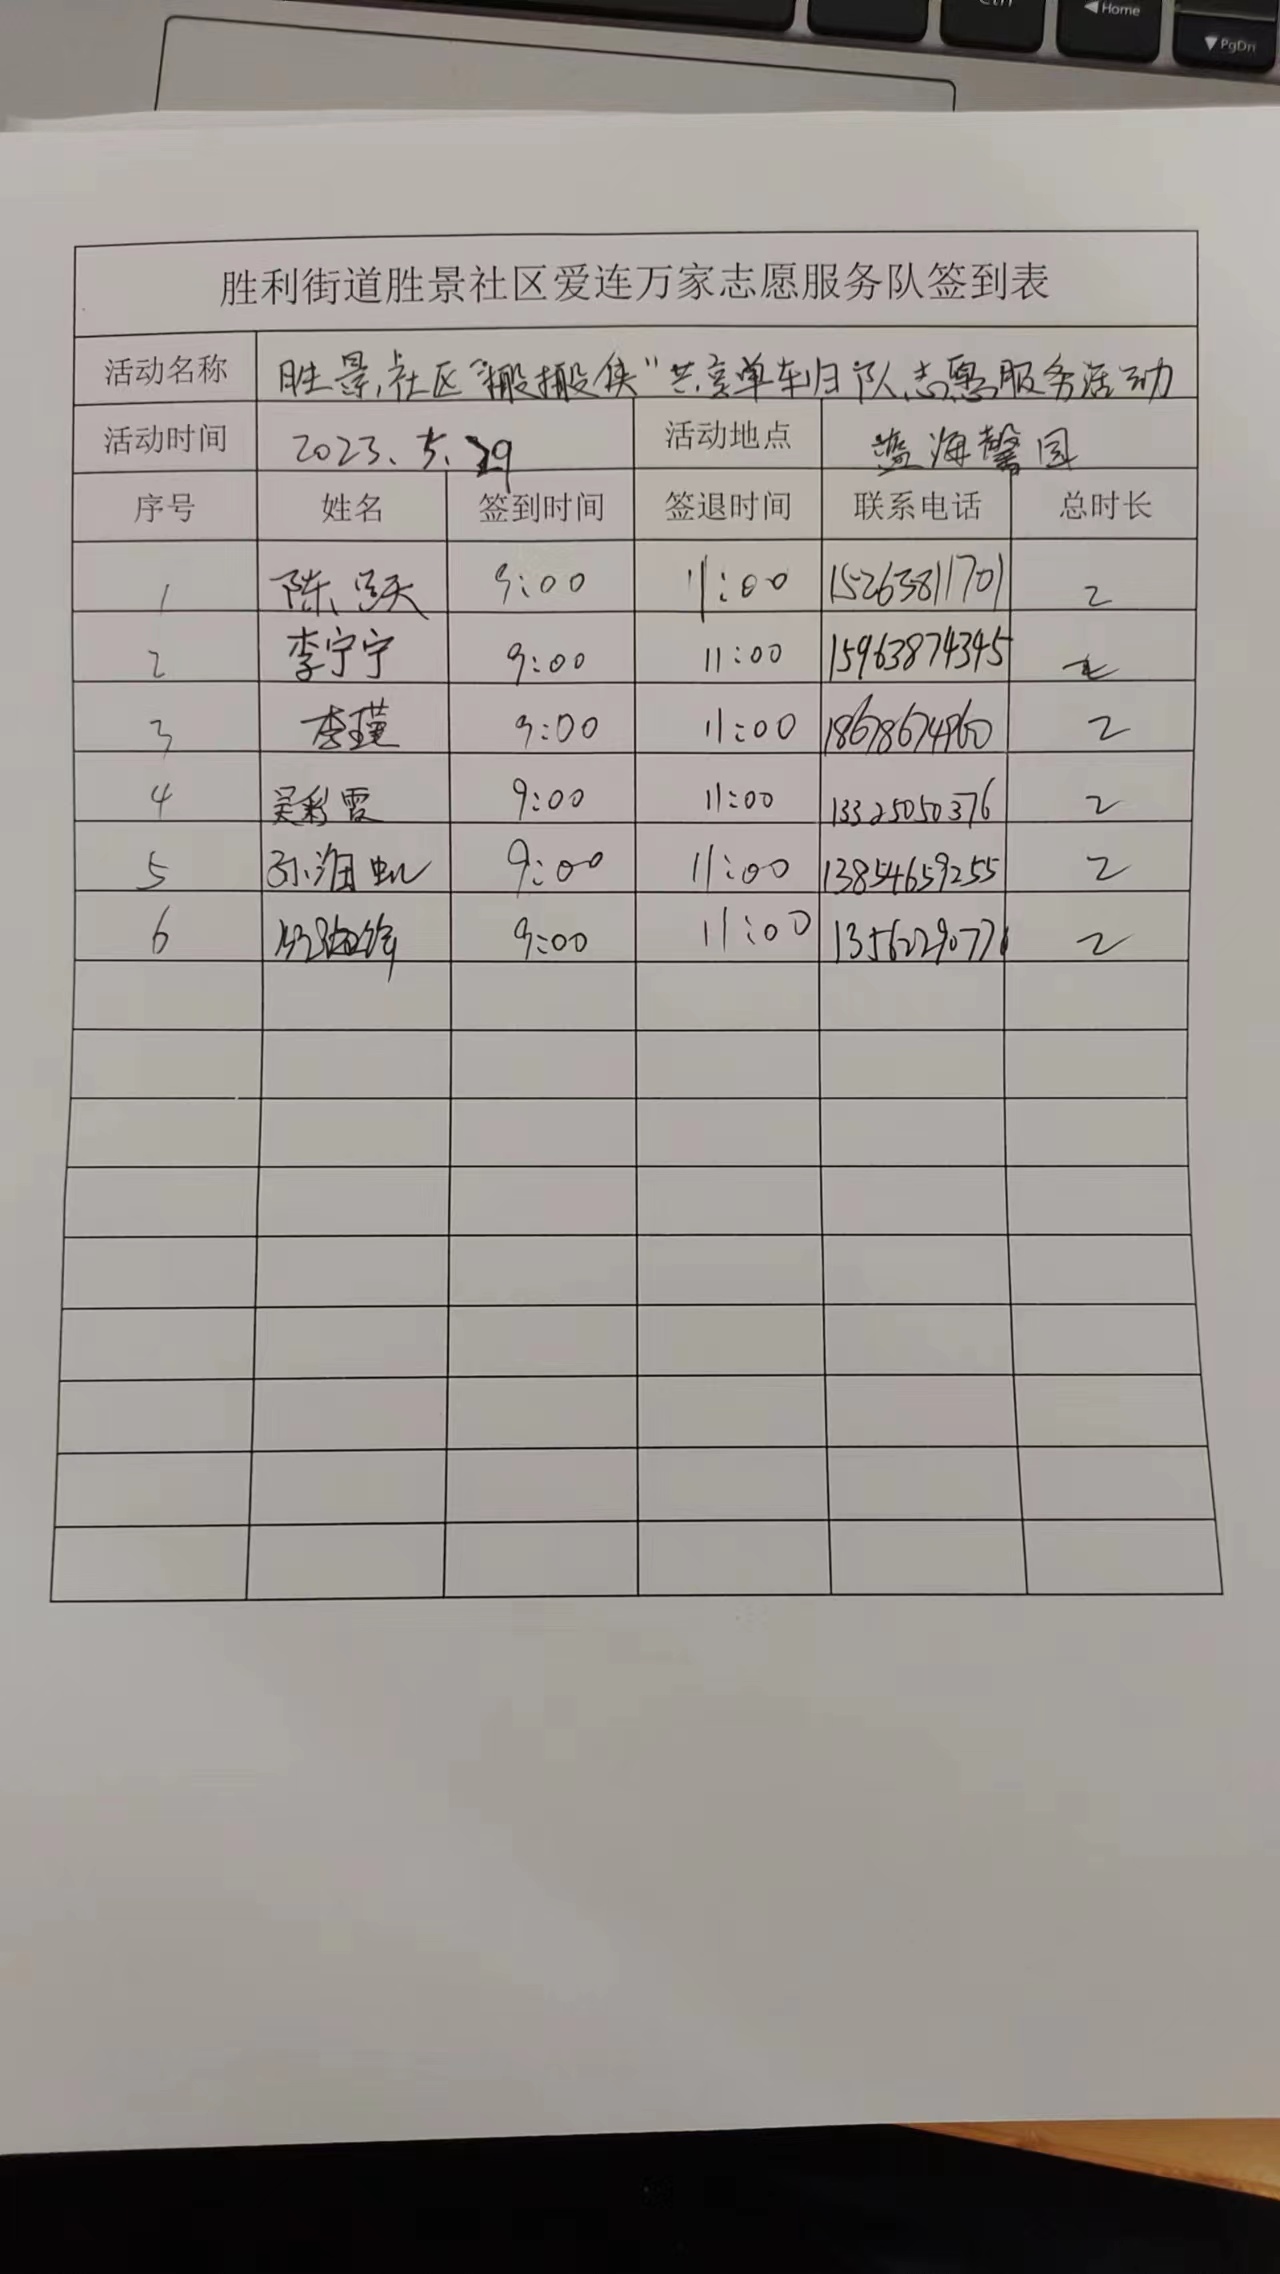 Ctrl
Home
PgDn
胜利街道胜景社区爱连万家志愿服务队签到表
活动名称 胜景社区“搬搬侠”共享单车归队志愿服务活动
活动时间 2023.5.29 活动地点 蓝海馨园
序号 姓名 签到时间 签退时间 联系电话 总时长
1 陈 9:00 11:00 15263811701 2
2 李宁宁 9:00 11:00 15963874345 2
3 李瑾 9:00 11:00 18678674960 2
4 吴彩霞 9:00 11:00 13325050376 2
5 孙海虹 9:00 11:00 13854659255 2
6 9:00 11:00 2